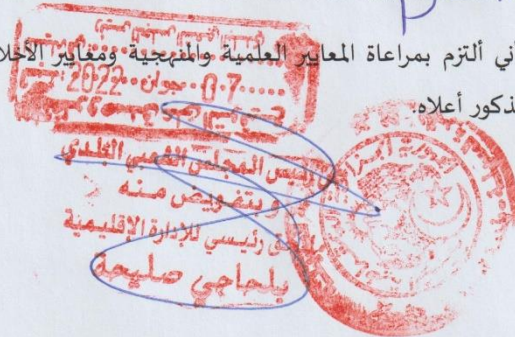 ني ألتزم بمراعاة المعايير العلمية والمنهجية ومعايير الأخلا
ذكور أعلاه.
07 جوان 2022
رئيس المجلس الشعبي البلدي
و بتفويض منه
ملحق رئيسي للإدارة الاقليمية
بلحاجي صليحة